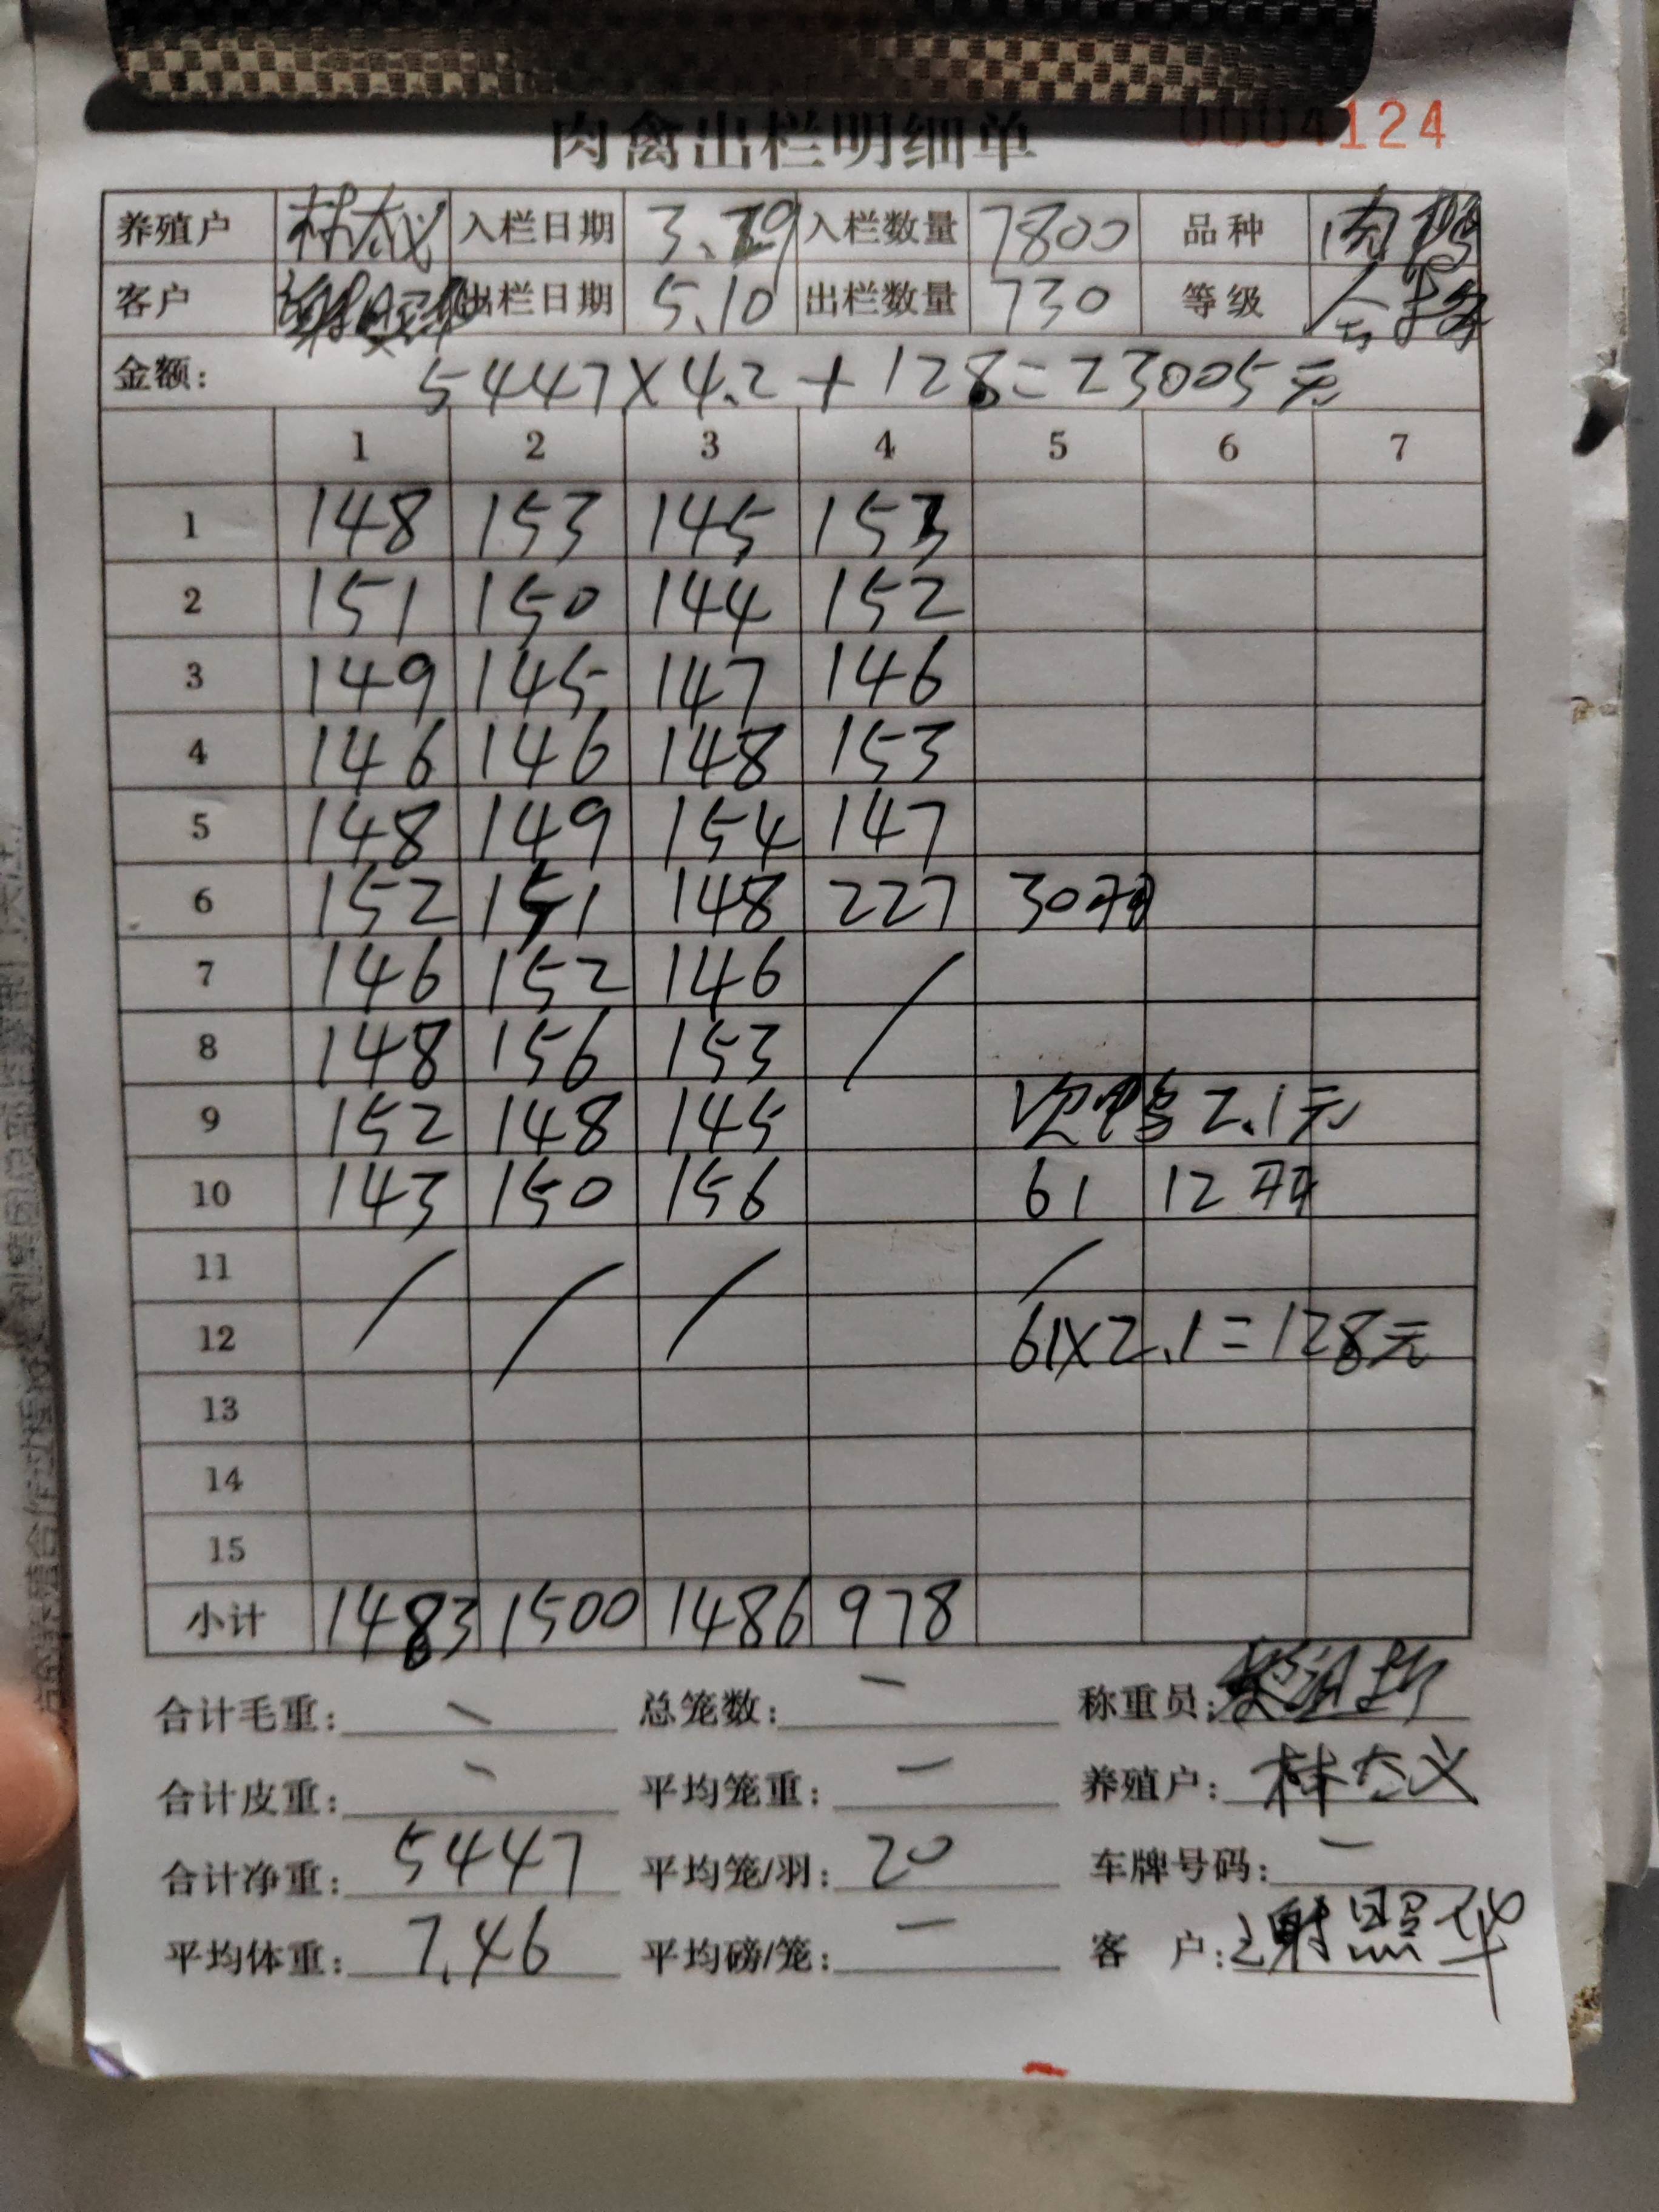 肉禽出栏明细单 0004124
养殖户 林太义 入栏日期 3.29 入栏数量 7800 品种 肉鸭
客户 谢照华 出栏日期 5.10 出栏数量 730 等级 合格
金额: 5447×4.2+128=23005元
1 2 3 4 5 6 7
1 148 153 145 153
2 151 150 144 152
3 149 145 147 146
4 146 146 148 153
5 148 149 154 147
6 152 151 148 227 30羽
7 146 152 146 /
8 148 156 153
9 152 148 145 次鸭2.1元
10 143 150 156 61 12羽
11 / / / /
12 61×2.1=128元
13
14
15
小计 1483 1500 1486 978
合计毛重: - 总笼数: - 称重员:
合计皮重: - 平均笼重: - 养殖户: 林太义
合计净重: 5447 平均笼/羽: 20 车牌号码: -
平均体重: 7.46 平均磅/笼: - 客 户: 谢照华